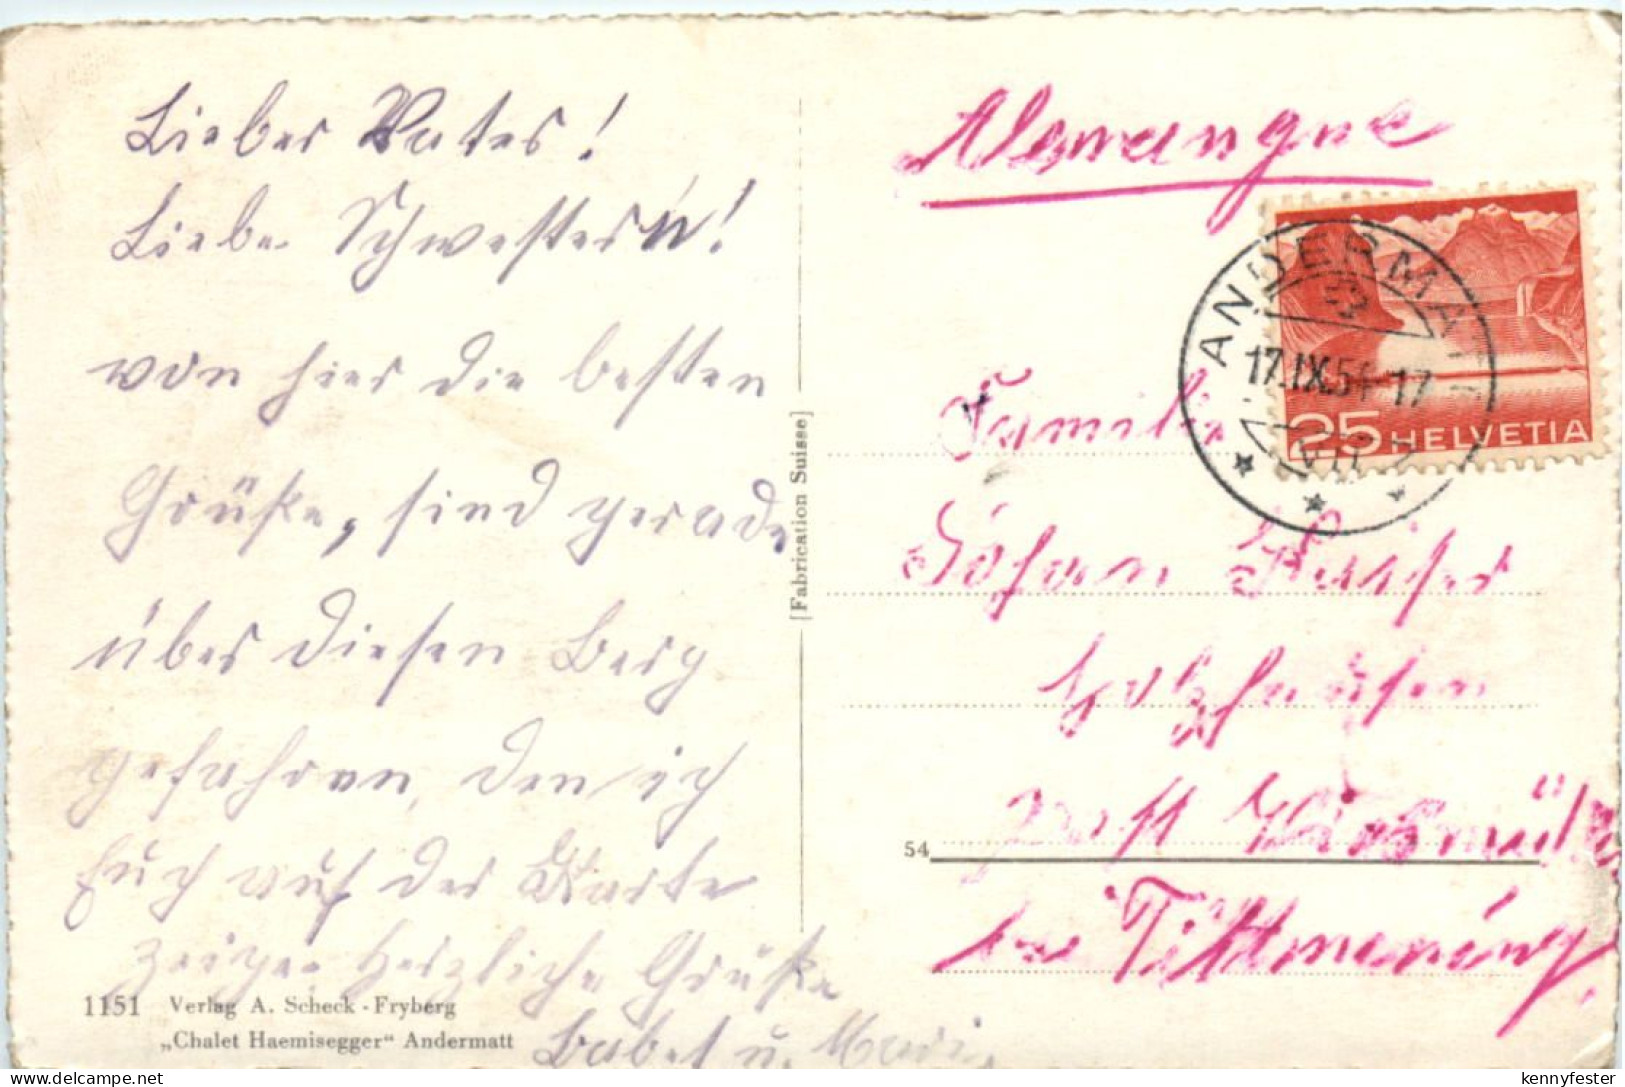 Lieber Vater!
Liebe Schwestern!
von hier die besten
Grüße, sind gerade
über diesen Berg
gefahren, den ich
Euch auf der Karte
zeige. Herzliche Grüße
Babet u. Mari.
1151 Verlag A. Scheck - Fryberg
„Chalet Haemisegger“ Andermatt
[Fabrication Suisse]
Alemangne
ANDERMATT
17.IX.54-17
25 HELVETIA
Familie
Johan Kaiser
Holzhausen
Post
54
bei Tittmoning.
kennyfester